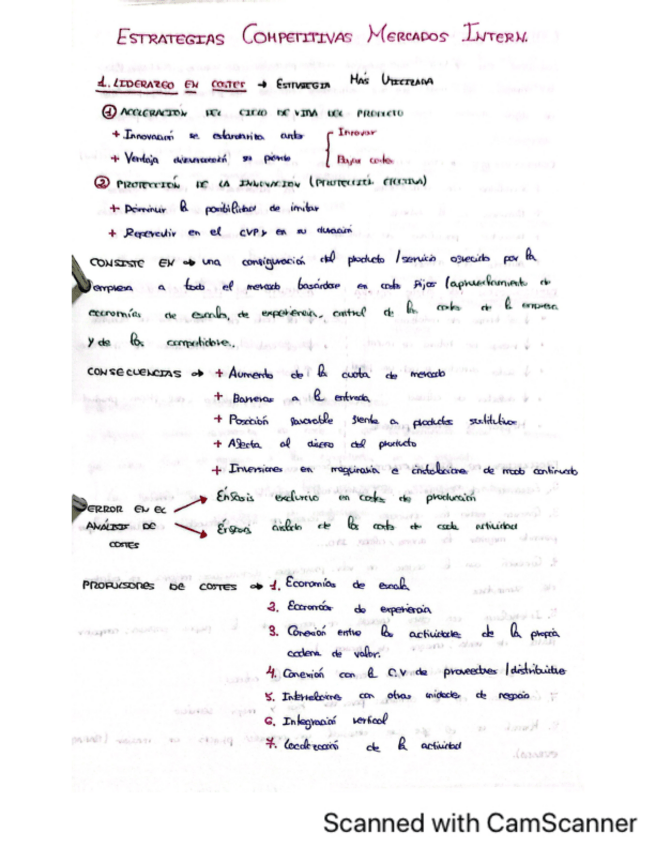 ESTRATEGIAS COMPETITIVAS MERCADOS INTERN.
1. LIDERAZGO EN COSTES → ESTRATEGIA MÁS UTILIZADA
① ACELERACIÓN DEL CICLO DE VIDA DEL PRODUCTO
+ Innovación se estandariza antes { Innovar
+ Ventaja diferenciación se pierde { Bajar costes
② PROTECCIÓN DE LA INNOVACIÓN (PROTECCIÓN EFECTIVA)
+ Disminuir la posibilidad de imitar
+ Repercutir en el CVP y en su duración
CONSISTE EN → una configuración del producto / servicio ofrecido por la
empresa a todo el mercado basándose en costes fijos (aprovechamiento de
economías de escala, de experiencia, control de los costes de la empresa
y de los competidores.
CONSECUENCIAS → + Aumento de la cuota de mercado
+ Barreras a la entrada
+ Posición favorable frente a productos sustitutivos
+ Afecta al diseño del producto
+ Inversiones en maquinaria e instalaciones de modo continuado
ERROR EN EL
ANÁLISIS DE
COSTES
Énfasis exclusivo en costes de producción
Énfasis aislado de los costes de cada actividad
PROPULSORES DE COSTES → 1. Economías de escala
2. Economías de experiencia
3. Conexión entre las actividades de la propia
cadena de valor.
4. Conexión con la C.V de proveedores / distribuidores
5. Interrelaciones con otras unidades de negocio
6. Integración vertical
7. Localización de la actividad
Scanned with CamScanner